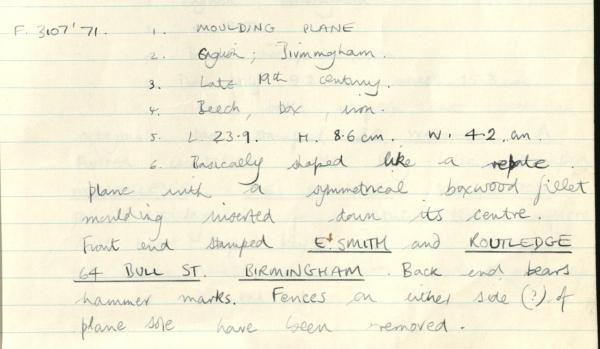 F. 3107'71. 1. MOULDING PLANE
2. English; Birmingham.
3. Late 19th century.
4. Beech, box, iron.
5. L. 23.9. H. 8.6 cm. W. 4.2 cm.
6. Basically shaped like a rebate
plane with a symmetrical boxwood fillet
moulding inserted down its centre.
Front end stamped E. SMITH and ROUTLEDGE
64 BULL ST. BIRMINGHAM. Back end bears
hammer marks. Fences on either side (?) of
plane sole have been removed.